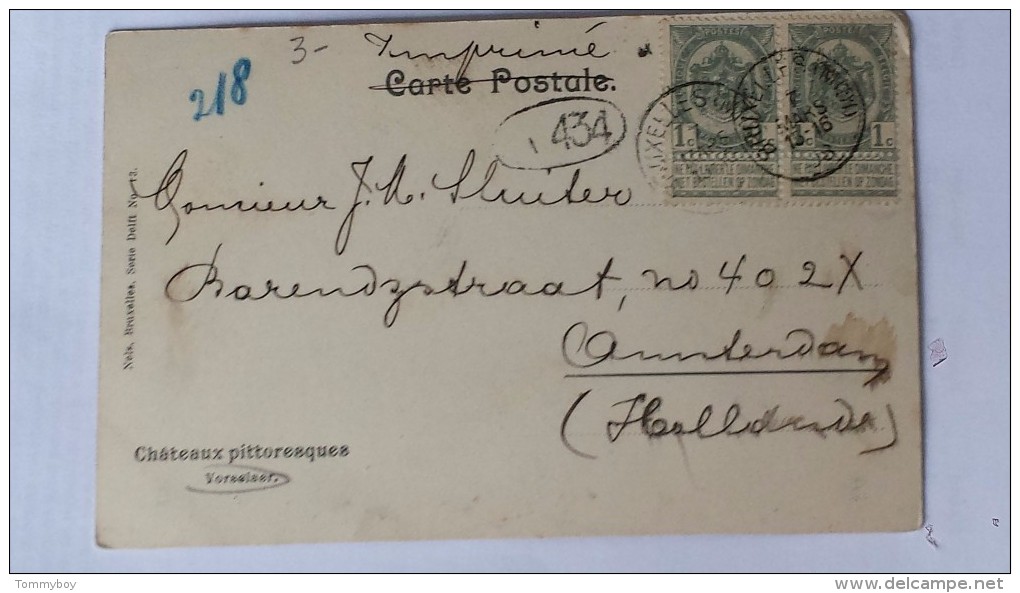 3- Imprimé
2/8
Carte Postale.
434
POSTES
BRUXELLES
1c 1c
NE PAS LIVRER LE DIMANCHE
NIET BESTELLEN OP ZONDAG
Monsieur J. M. Sluiter
Barendszstraat, no 40 2X
Amsterdam
(Hollande)
Nels, Bruxelles, Serie Delft No. 13.
Châteaux pittoresques
Vorselaer.
TommyBoy
www.delcampe.net